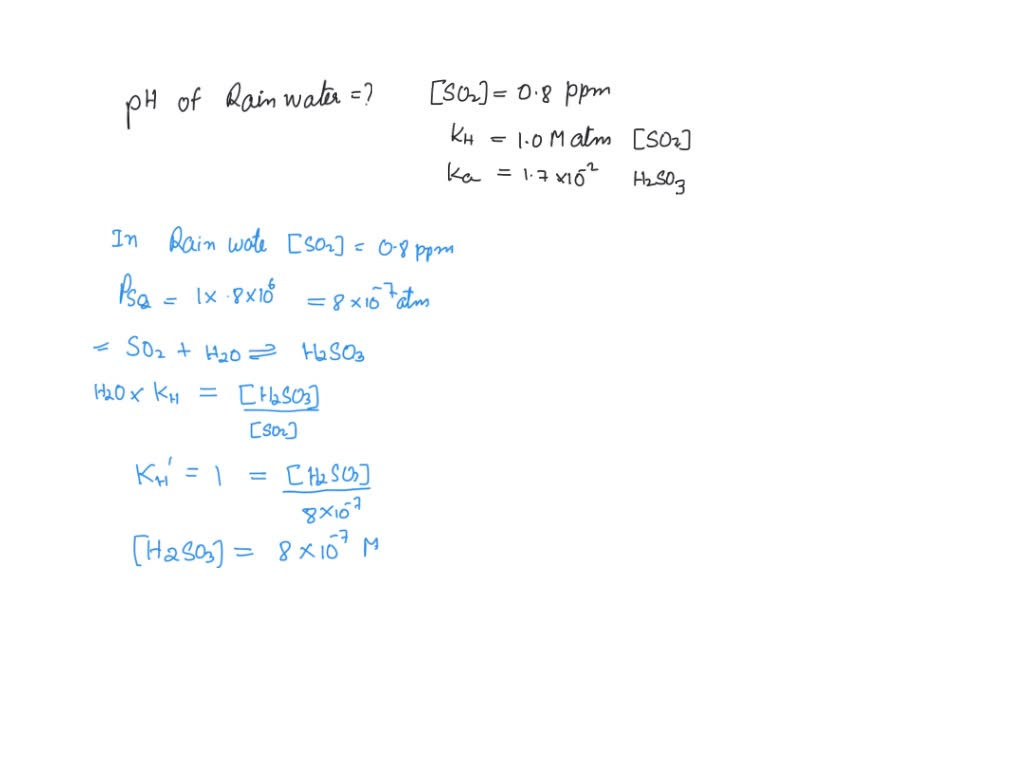 pH of Rain water = ? [SO2] = 0.8 ppm
KH = 1.0 M atm [SO2]
Ka = 1.7 x 10^-2 H2SO3
In Rain wate [SO2] = 0.8 ppm
PSO2 = 1 x .8 x 10^6 = 8 x 10^-7 atm
= SO2 + H2O ⇌ H2SO3
H2O x KH = [H2SO3] / [SO2]
KH' = 1 = [H2SO3] / 8 x 10^-7
[H2SO3] = 8 x 10^-7 M